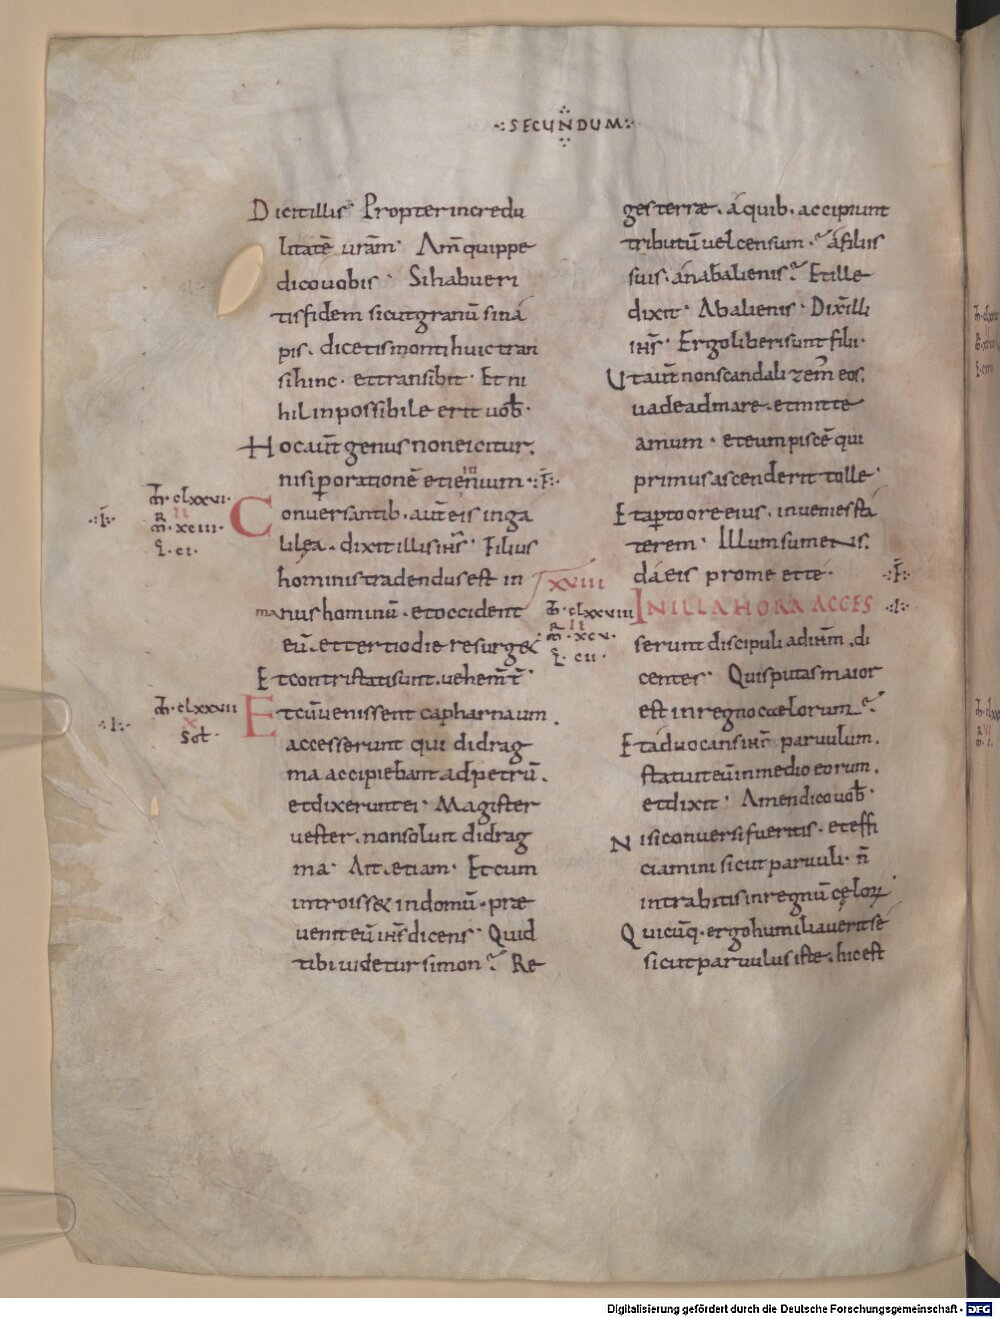 SECUNDUM
Dicit illis · Propter incredu
litatē urām · Am̄ quippe
dico uobis · Si habueri
tis fidem sicut granū sina
pis . dicetis monti huic tran
si hinc · et transibit · Et ni
hil inpossibile erit uob̄ ·
Hoc aut̄ genus non eicitur .
nisi p̄ orationē et ieiunium · F̄
m̄ · clxxvi ·
R II
m̄ · xciii ·
L · ci ·
Conuersantib · aut̄ eis in ga
lilea . dixit illis ih̄s · Filius
hominis tradendus est in
manus hominū · et occident
eū . et tertio die resurget
Et contristati sunt . uehem̄t̄
m̄ · clxxvii
X
Sol ·
Et cū uenissent capharnaum .
accesserunt qui didrag
ma accipiebant ad petrū .
et dixerunt ei · Magister
uester . non soluit didrag
ma · Ait . etiam · Et cum
introisset in domū · prae
uenit eū ih̄s dicens · Quid
tibi uidetur simon ? Re
ges terrae . a quib · accipiunt
tributū uel censum ? a filiis
suis . an ab alienis ? Et ille
dixit · Ab alienis · Dix̄ illi
ih̄s · Ergo liberi sunt filii ·
Ut aut̄ non scandalizem̄ eos .
uade ad mare . et mitte
amum · et eum piscē qui
primus ascenderit tolle ·
Et apto ore eius . inuenies sta
terem · Illum sumens .
da eis pro me et te · F̄
XXVIII
m̄ · clxxviii
R II
m̄ · xcv ·
L · cii ·
IN ILLA HORA ACCES
serunt discipuli ad ih̄m . di
centes · Quis putas maior
est in regno caelorum ?
Et aduocans ih̄s paruulum .
statuit eū in medio eorum .
et dixit · Amen dico uob̄ ·
Nisi conuersi fueritis . et effi
ciamini sicut paruuli · n̄
intrabitis in regnū cęlorꝝ ·
Quicūq · ergo humiliauerit se
sicut paruulus iste . hic est
Digitalisierung gefördert durch die Deutsche Forschungsgemeinschaft - DFG